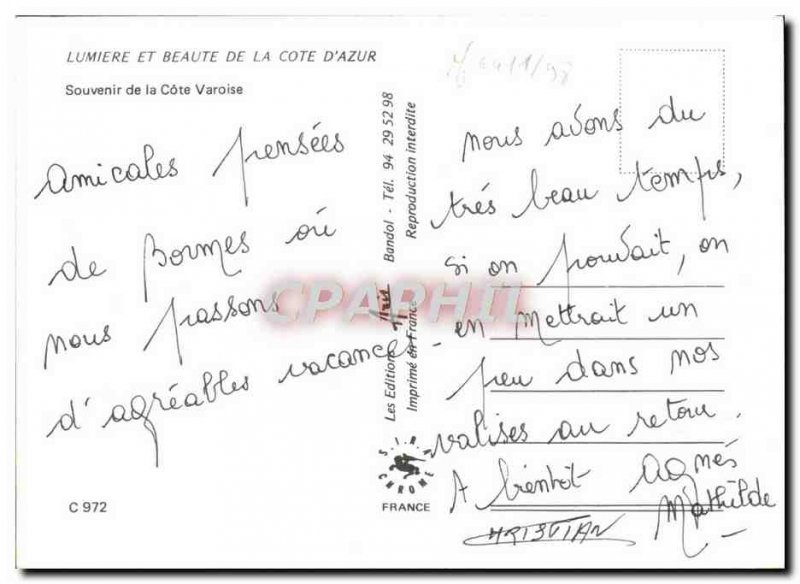 LUMIERE ET BEAUTE DE LA COTE D'AZUR
Souvenir de la Côte Varoise
Amicales pensées
de Bormes où
nous passons
d'agréables vacances
C 972
Les Editions Aris Bandol - Tél. 94 29 52 98
Imprimé en France Reproduction interdite
FRANCE
CPAPHIL
nous avons du
très beau temps,
si on pouvait, on
en mettrait un
peu dans nos
valises au retour.
A bientôt Agnés
Mathilde
CHRISTIAN